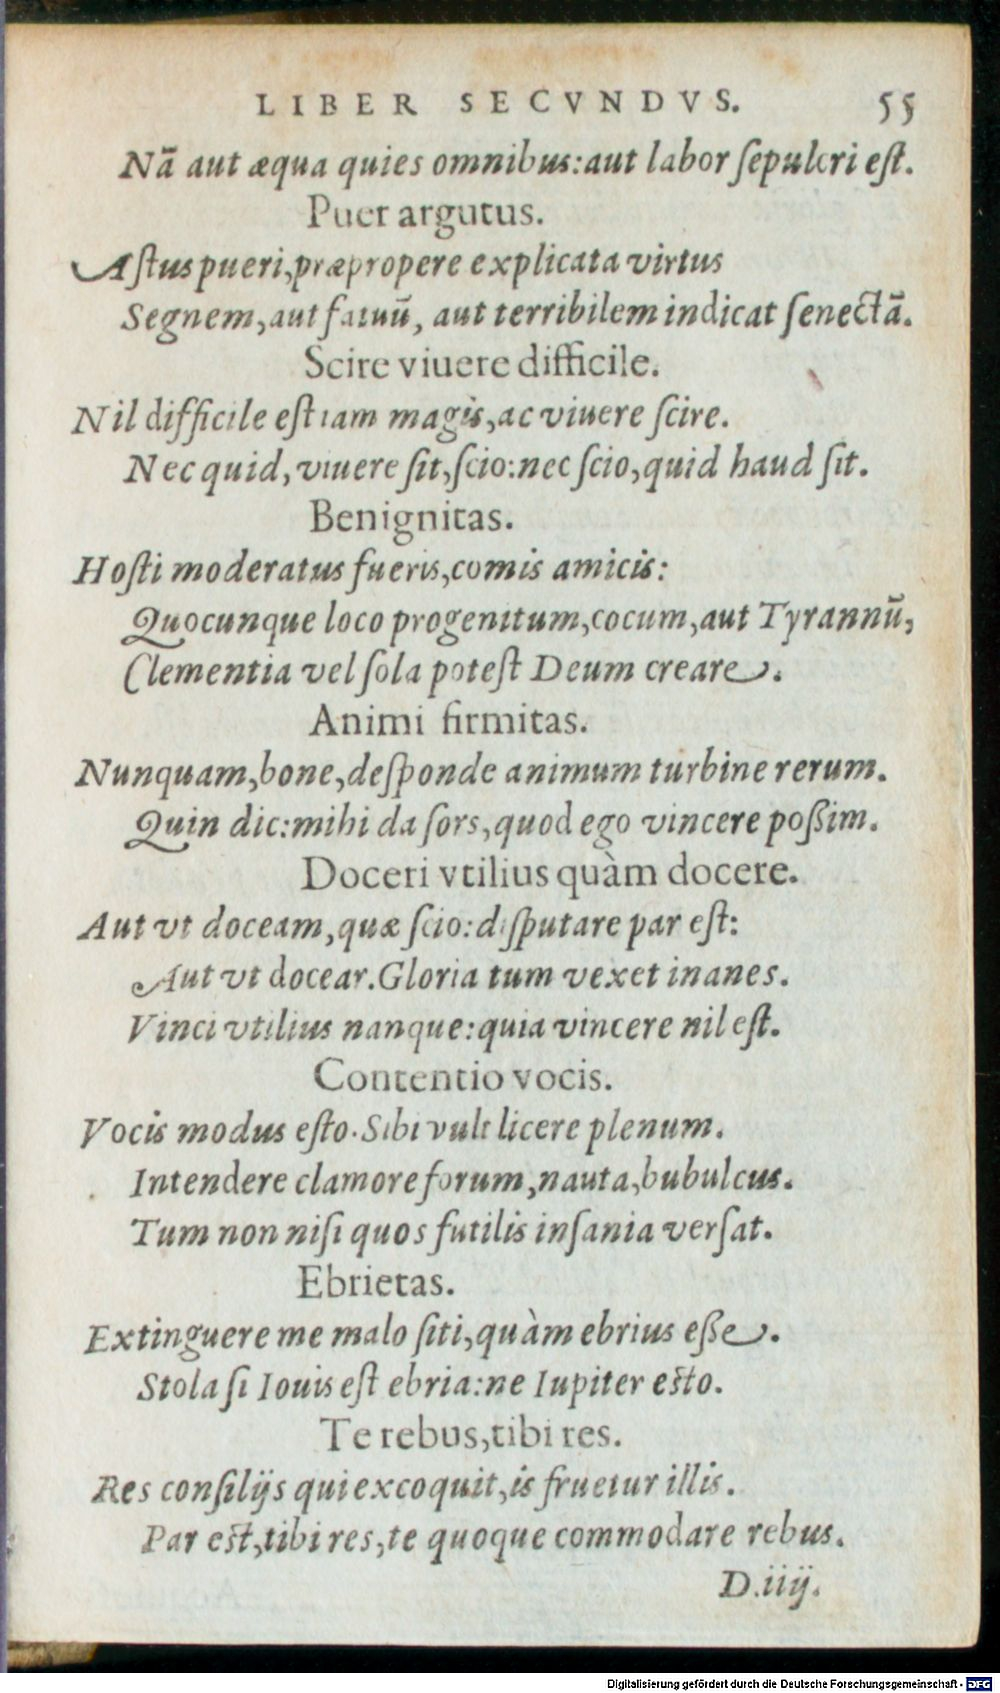 LIBER SECVNDVS. 55
Nā aut æqua quies omnibus: aut labor ſepulcri eſt.
Puer argutus.
Aſtus pueri, præpropere explicata virtus
Segnem, aut fatuū, aut terribilem indicat ſenectā.
Scire viuere difficile.
Nil difficile eſt iam magis, ac viuere ſcire.
Nec quid, viuere ſit, ſcio: nec ſcio, quid haud ſit.
Benignitas.
Hoſti moderatus fueris, comis amicis:
Quocunque loco progenitum, cocum, aut Tyrannū,
Clementia vel ſola poteſt Deum creare.
Animi firmitas.
Nunquam, bone, deſponde animum turbine rerum.
Quin dic: mihi da ſors, quod ego vincere poßim.
Doceri vtilius quàm docere.
Aut vt doceam, quæ ſcio: diſputare par eſt:
Aut vt docear. Gloria tum vexet inanes.
Vinci vtilius nanque: quia vincere nil eſt.
Contentio vocis.
Vocis modus eſto. Sibi vult licere plenum.
Intendere clamore forum, nauta, bubulcus.
Tum non niſi quos futilis inſania verſat.
Ebrietas.
Extinguere me malo ſiti, quàm ebrius eße.
Stola ſi Iouis eſt ebria: ne Iupiter eſto.
Te rebus, tibi res.
Res conſilijs qui excoquit, is fruetur illis.
Par eſt, tibi res, te quoque commodare rebus.
D.iiij.
Digitalisierung gefördert durch die Deutsche Forschungsgemeinschaft - DFG